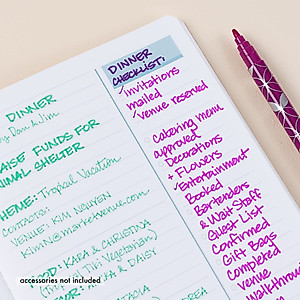 DINNER
Dam & Jim
AISE FUNDS FOR
IMAL SHELTER
HEME: Tropical Vacation
CONTACTS:
VENUE: KIM NGUYEN
KIMN@marketvenue.com
FOOD: KARA & CHRISTINA
Vegetarian)
& DAISY
DINNER
CHECKLIST:
✓invitations
mailed
✓venue reserved
Catering menu
approved
Decorations
+ Flowers
✓Entertainment
Booked
Bartenders
& Wait Staff
Guest List
Confirmed
Gift Bags
completed
venue
walkthrough
accessories not included